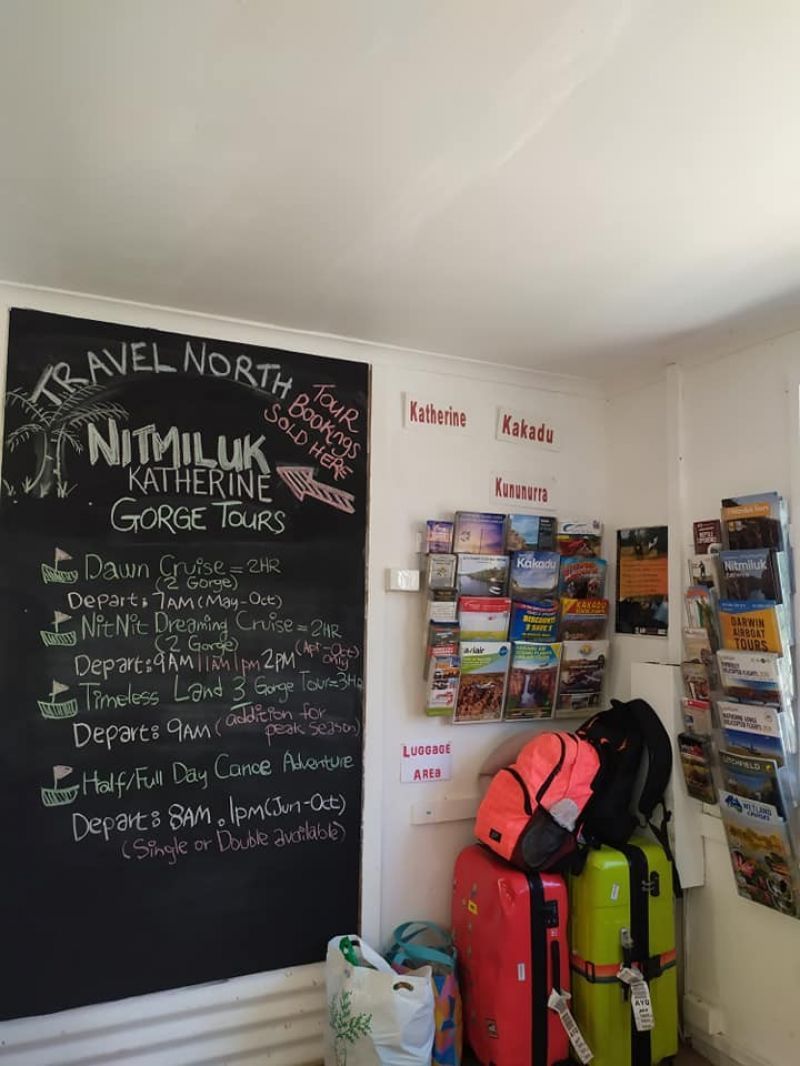 TRAVEL NORTH
TOUR
BOOKINGS
SOLD HERE
NITMILUK
KATHERINE
GORGE TOURS
Dawn Cruise = 2HR
(2 Gorge)
Depart: 7AM (May-Oct)
NitNit Dreaming Cruise = 2HR
(2 Gorge)
(Apr-Oct only)
Depart: 9AM 11AM 1pm 2PM
Timeless Land 3 Gorge Tour = 3HR
Depart: 9AM (addition for
peak season)
Half/Full Day Canoe Adventure
Depart: 8AM . 1PM (Jun-Oct)
(Single or Double available)
Katherine
Kakadu
Kununurra
LUGGAGE
AREA
Kakadu
KAKADU
Nitmiluk
DARWIN
AIRBOAT
TOURS
LITCHFIELD
WETLAND
CRUISES